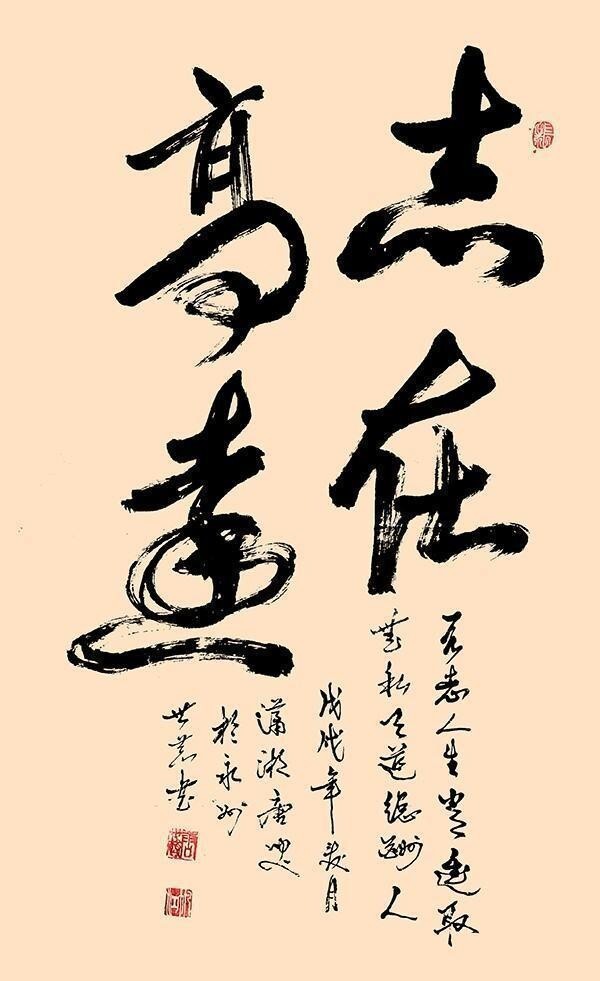 志在
高遠
有志人生當進取
無私天道總酬人
戊戌年月
瀟湘唐
於永州
世書